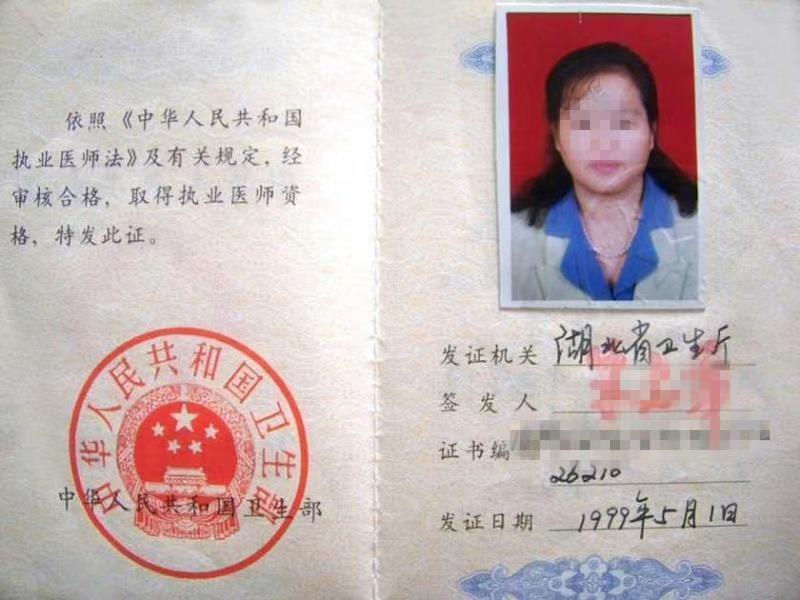 依照《中华人民共和国
执业医师法》及有关规定，经
审核合格，取得执业医师资
格，特发此证。
中华人民共和国卫生部
中华人民共和国卫生部
发证机关 湖北省卫生厅
签发人
证书编
26210
发证日期 1999年5月1日